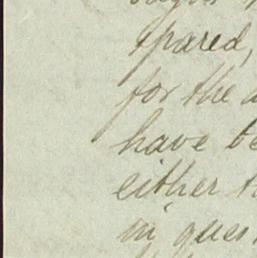 spared,
for the
have be
either t
in ques